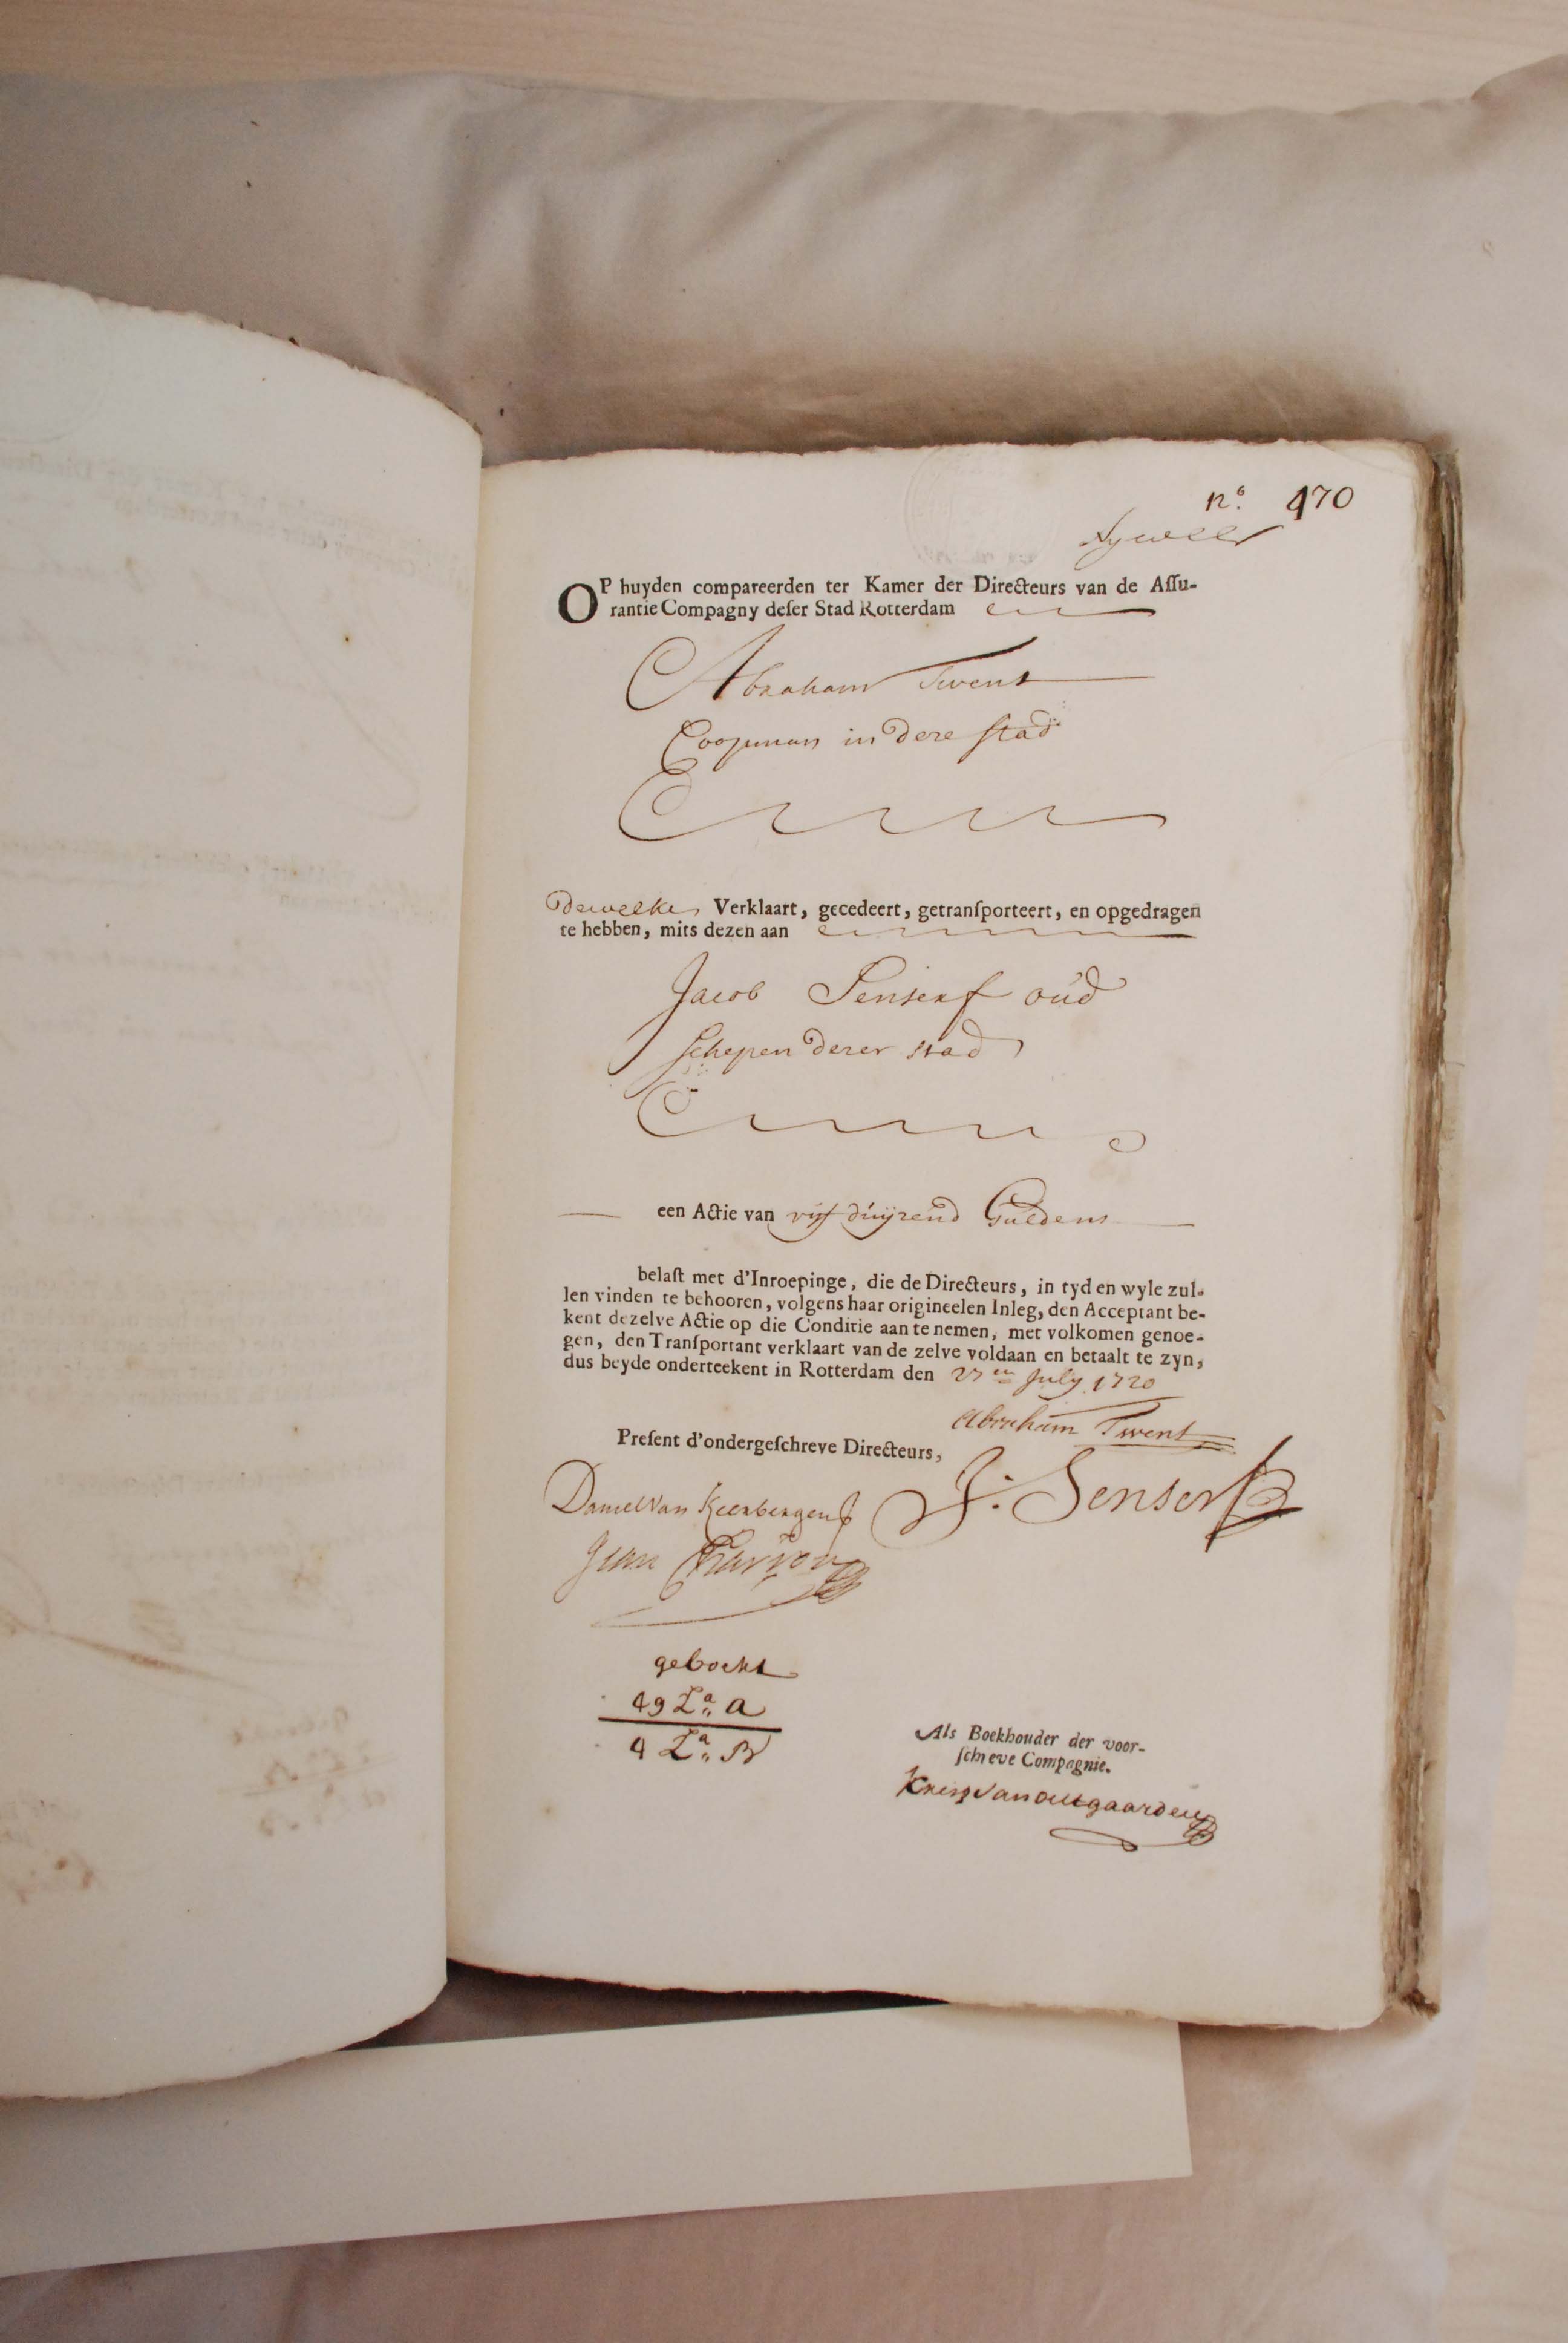 nº. 470
OP huyden compareerden ter Kamer der Directeurs van de Assu-
rantie Compagny deser Stad Rotterdam
Abraham Twent
Coopman in dere stad
dewelke Verklaart, gecedeert, getransporteert, en opgedragen
te hebben, mits dezen aan
Jacob Senserf oud
schepen derer stad
een Actie van vijf duijzend Guldens
belast met d'Inroepinge, die de Directeurs, in tyd en wyle zul-
len vinden te behooren, volgens haar origineelen Inleg, den Acceptant be-
kent dezelve Actie op die Conditie aan te nemen, met volkomen genoe-
gen, den Transportant verklaart van de zelve voldaan en betaalt te zyn,
dus beyde onderteekent in Rotterdam den 27en July 1720
Abraham Twent
Present d'ondergeschreve Directeurs,
J. Senserf
Daniel Van Keerbergen
Jean
geboekt
49 La. A
4 La. B
Als Boekhouder der voor-
schreve Compagnie.
Van outgaarden